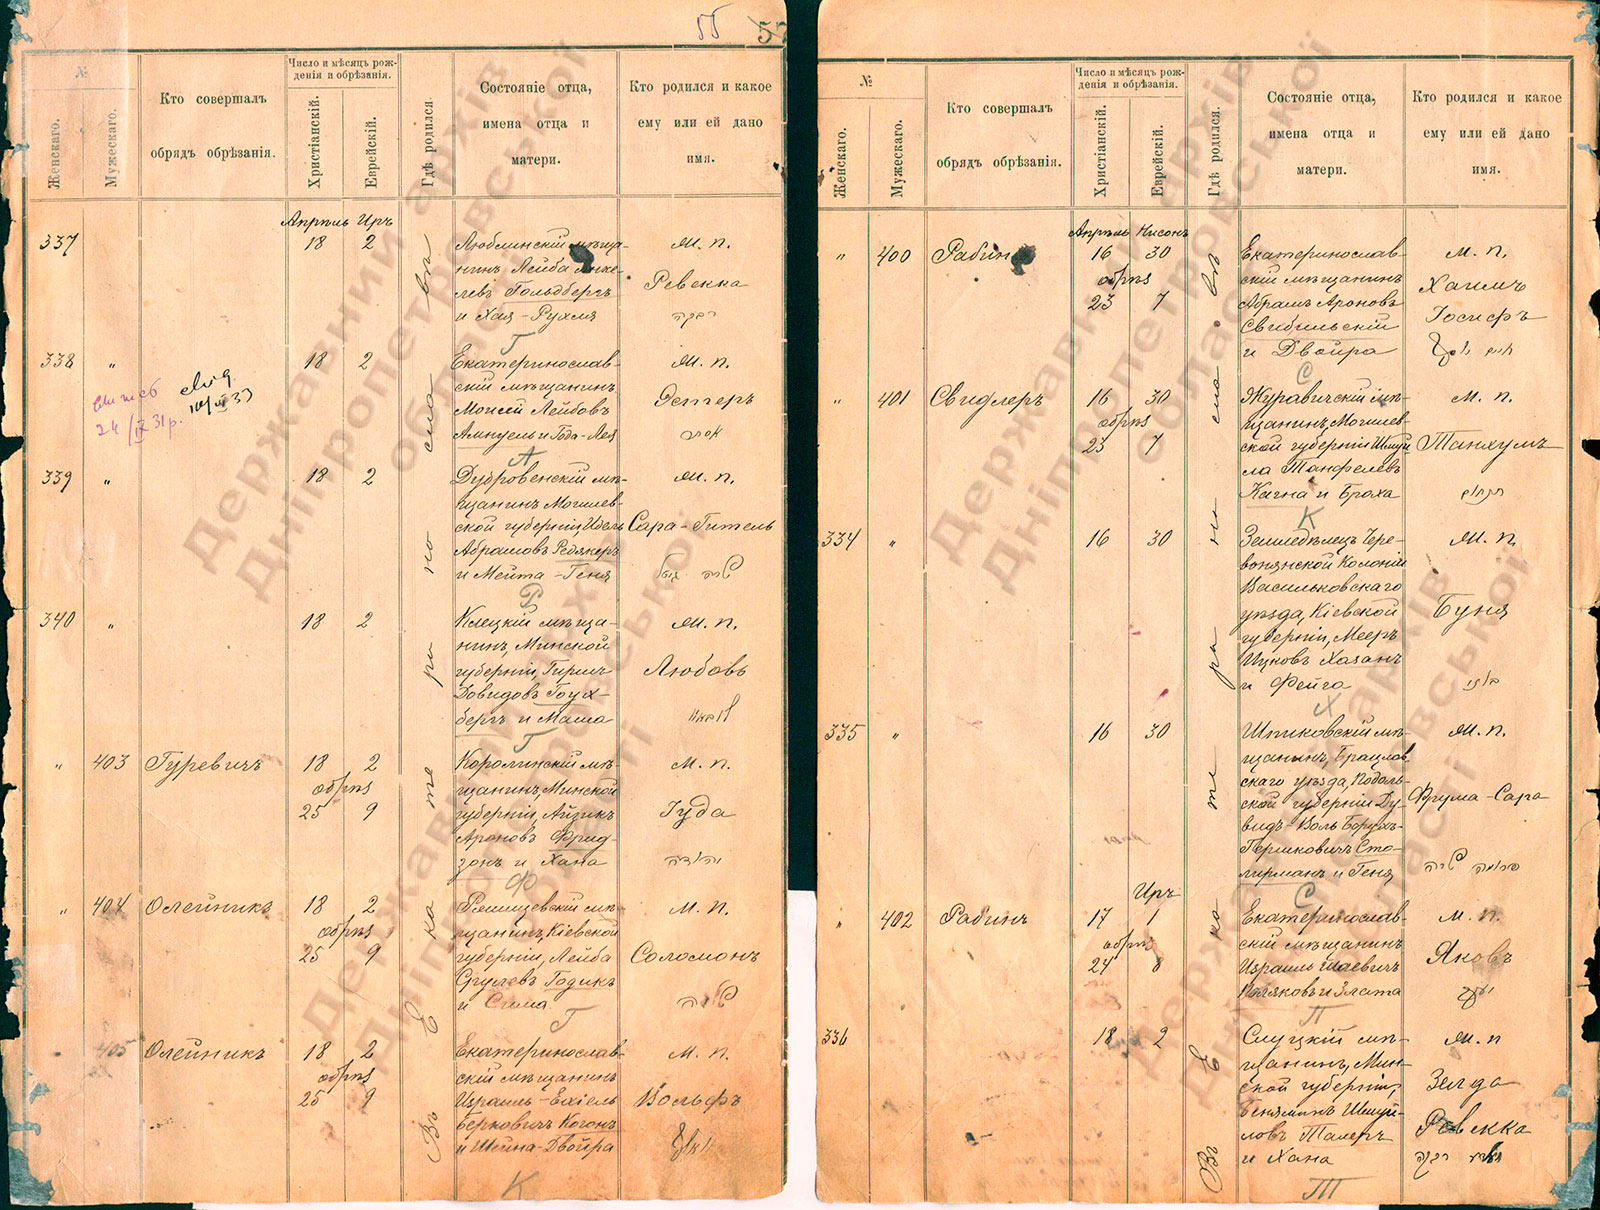 55
57
№
Женскаго.
Мужескаго.
Кто совершалъ
обрядъ обрѣзанія.
Число и мѣсяцъ рож-
денія и обрѣзанія.
Христіанскій.
Еврейскій.
Гдѣ родился.
Состояніе отца,
имена отца и
матери.
Кто родился и какое
ему или ей дано
имя.
Апрѣль Иръ
337 18 2
Люблинскій мѣща-
нинъ Лейба Янке-
левъ Гольдбергъ
и Хая-Рухля
Г
М. п.
Ревекка
רבקה
338 " 18 2
24/IX 31р.
Екатеринослав-
скій мѣщанинъ
Моисей Лейбовъ
Ампуель и Года-Лея
А
М. п.
Эстеръ
אסתר
339 " 18 2
Дубровенскій мѣ-
щанинъ Могилев-
ской губерніи, Идель
Абрамовъ Редякеръ
и Мейта-Геня
Р
М. п.
Сара-Гитель
שרה גיטל
340 " 18 2
Клецкій мѣща-
нинъ, Минской
губерніи, Гиршъ
Довидовъ Гоух-
бергъ и Маша
Г
М. п.
Любовь
" 403 Гуревичъ 18 2
обрѣз
25 9
Королинскій мѣ-
щанинъ, Минской
губерніи, Айзикъ
Ароновъ Фрид-
зонъ и Хана
Ф
М. п.
Іуда
יהודה
" 404 Олейникъ 18 2
обрѣз
25 9
Ряшцевскій мѣ-
щанинъ, Кіевской
губерніи, Лейба
Срулевъ Годикъ
и Сима
Г
М. п.
Соломонъ
שלמה
405 Олейникъ 18 2
обрѣз
25 9
Екатеринослав-
скій мѣщанинъ
Израиль-Ехіель
Берковичъ Когонъ
и Шейна-Двойра
К
М. п.
Вольфъ
וואלף
Въ Екатеринославѣ
№
Женскаго.
Мужескаго.
Кто совершалъ
обрядъ обрѣзанія.
Число и мѣсяцъ рож-
денія и обрѣзанія.
Христіанскій.
Еврейскій.
Гдѣ родился.
Состояніе отца,
имена отца и
матери.
Кто родился и какое
ему или ей дано
имя.
Апрѣль Нисонъ
" 400 Рабинъ 16 30
обрѣз
23 7
Екатеринослав-
скій мѣщанинъ
Абрамъ Ароновъ
Свибильскій
и Двойра
С
М. п.
Хаимъ
Іосифъ
חיים יוסף
" 401 Свидлеръ 16 30
обрѣз
23 7
Журавичскій мѣ-
щанинъ, Могилев-
ской губерніи Шмуй
ла Танфелевъ
Кагна и Броха
К
М. п.
Танхумъ
תנחום
334 " 16 30
Земледѣлецъ Чере-
вонянской Колоніи
Васильковскаго
уѣзда, Кіевской
губерніи, Мееръ
Ицковъ Хазанъ
и Фейга
Х
М. п.
Буня
בוניא
335 " 16 30
Шпиковскій мѣ-
щанинъ, Брацлов-
скаго уѣзда, Подоль-
ской губерніи Ду-
видъ-Воль Борухъ-
Першковичъ Сто-
лирманъ и Геня
С
М. п.
Фрума-Сара
פרומה שרה
Иръ
" 402 Рабинъ 17 1
обрѣз
24 8
Екатеринослав-
скій мѣщанинъ
Израиль Шаевичъ
Поляковъ и Злата
П
М. п.
Яковъ
יעקב
336 18 2
Слуцкій мѣ-
щанинъ, Мин-
ской губерніи,
Беняминъ Шмуй-
ловъ Талеръ
и Хана
Т
М. п
Зелда
Ревекка
זעלדא רבקה
Въ Екатеринославѣ
Державний архів
Дніпропетровської
області